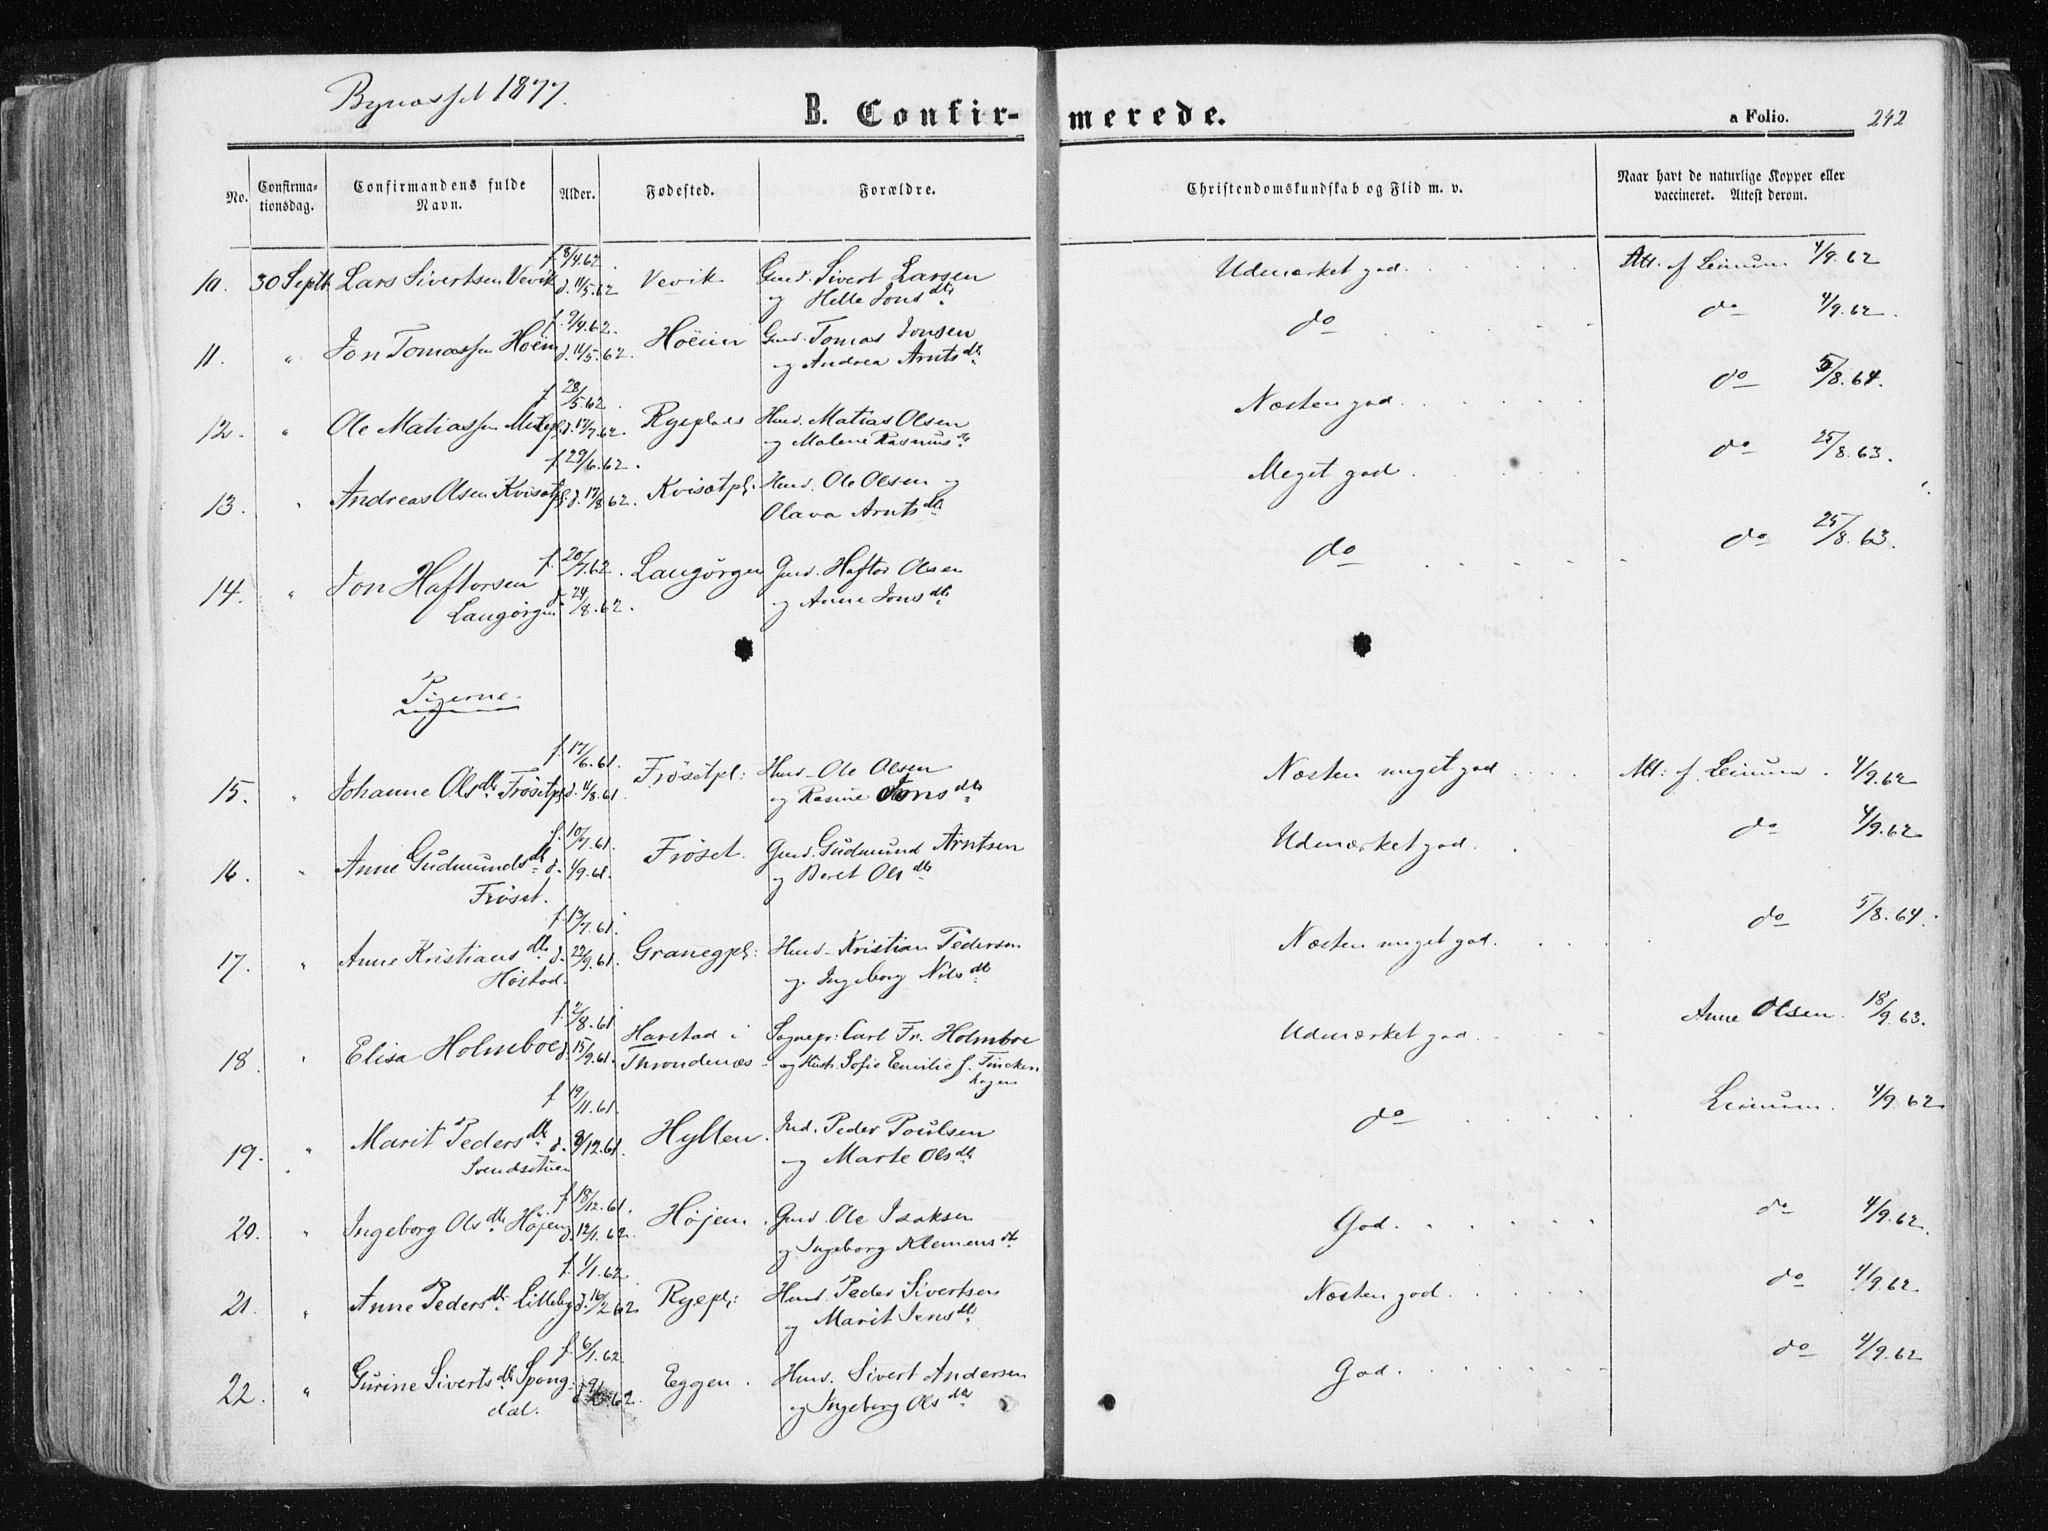 Bynæsset 1877.
B. Confir-merede.
a Folio. 242
No. Confirma-tionsdag. Confirmandens fulde Navn. Alder. Fødested. Forældre. Christendomskundskab og Flid m. v. Naar havt de naturlige Kopper eller vaccineret. Attest derom.
f. 8/4.62.
10. 30 Septb. Lars Sivertsen Vevik d. 11/5.62 Vevik Gmd. Sivert Larsen Udmærket god. Att. af Leinum 4/9.62
og Helle Jonsdtr
f. 9/4.62.
11. " Jon Tomassen Hoëm d. 11/5.62. Hoëim Gmd. Tomas Jonsen do do 4/9.62.
og Andrea Arntsdtr
f. 28/5.62.
12. " Ole Matiassen d. 17/7.62. Ryeplads Hmd. Matias Olsen Næsten god. do 5/8.64.
og Malene Rasmusdtr
f. 29/6.62.
13. " Andreas Olsen Kvisætpl. d. 17/8.62. Kvisætpl: Hmd. Ole Olsen og Meget god do 25/8.63.
Olava Arntsdtr
f. 20/7.62.
14. " Jon Haftorsen Langörgen Gmd. Haftor Olsen do do 25/8.63.
Langørgen d. 24/8.62. og Anne Jonsdtr
Pigerne.
f. 17/6.61.
15. " Johanne Olsdtr Frösetpl d. 11/8.61. Frösetpl: Hmd. Ole Olsen Næsten meget god Att: af Leinum. 4/9.62
og Rasine Jonsdtr
f. 10/7.61.
16. " Anne Gudmundsdtr d. 1/9.61. Fröset. Gmd. Gudmund Arntsen Udmærket god. do 4/9.62
Fröset. og Beret Olsdtr
f. 13/7.61.
17. " Anne Kristiansdtr d. 22/9.61. Granegpl: Hmd. Kristian Pedersen Næsten meget god. do 5/8.64.
Höstad. og Ingeborg Nilsdtr
f. 2/8.61.
18. " Elisa Holmboe d. 15/9.61. Harstad i Sognepr: Carl Fr. Holmboe Udmærket god. Anne Olsen. 18/9.63.
Throndenæs og Hust. Sofie Emilie f. Fincken
hagen
f. 19/11.61.
19. " Marit Pedersdtr d. 8/12.61. Hyllen. Ind. Peder Poulsen do Leinum. 4/9.62
Svendsstuen og Marte Olsdtr
f. 18/12.61.
20. " Ingeborg Olsdtr Höjem d. 12/1.62. Höjem. Gmd. Ole Isaksen God. do 4/9.62.
og Ingeborg Klemensdtr
f. 1/1.62.
21. " Anne Pedersdtr Lilleby d. 16/2.62 Ryepl: Hmd. Peder Sivertsen Næsten god. do 4/9.62
og Marit Jensdtr
f. 6/1.62.
22. " Gurine Sivertsdtr Spong- d. 9/2.62. Eggen. Hmd. Sivert Andersen God. do 4/9.62
dal. og Ingeborg Olsdtr